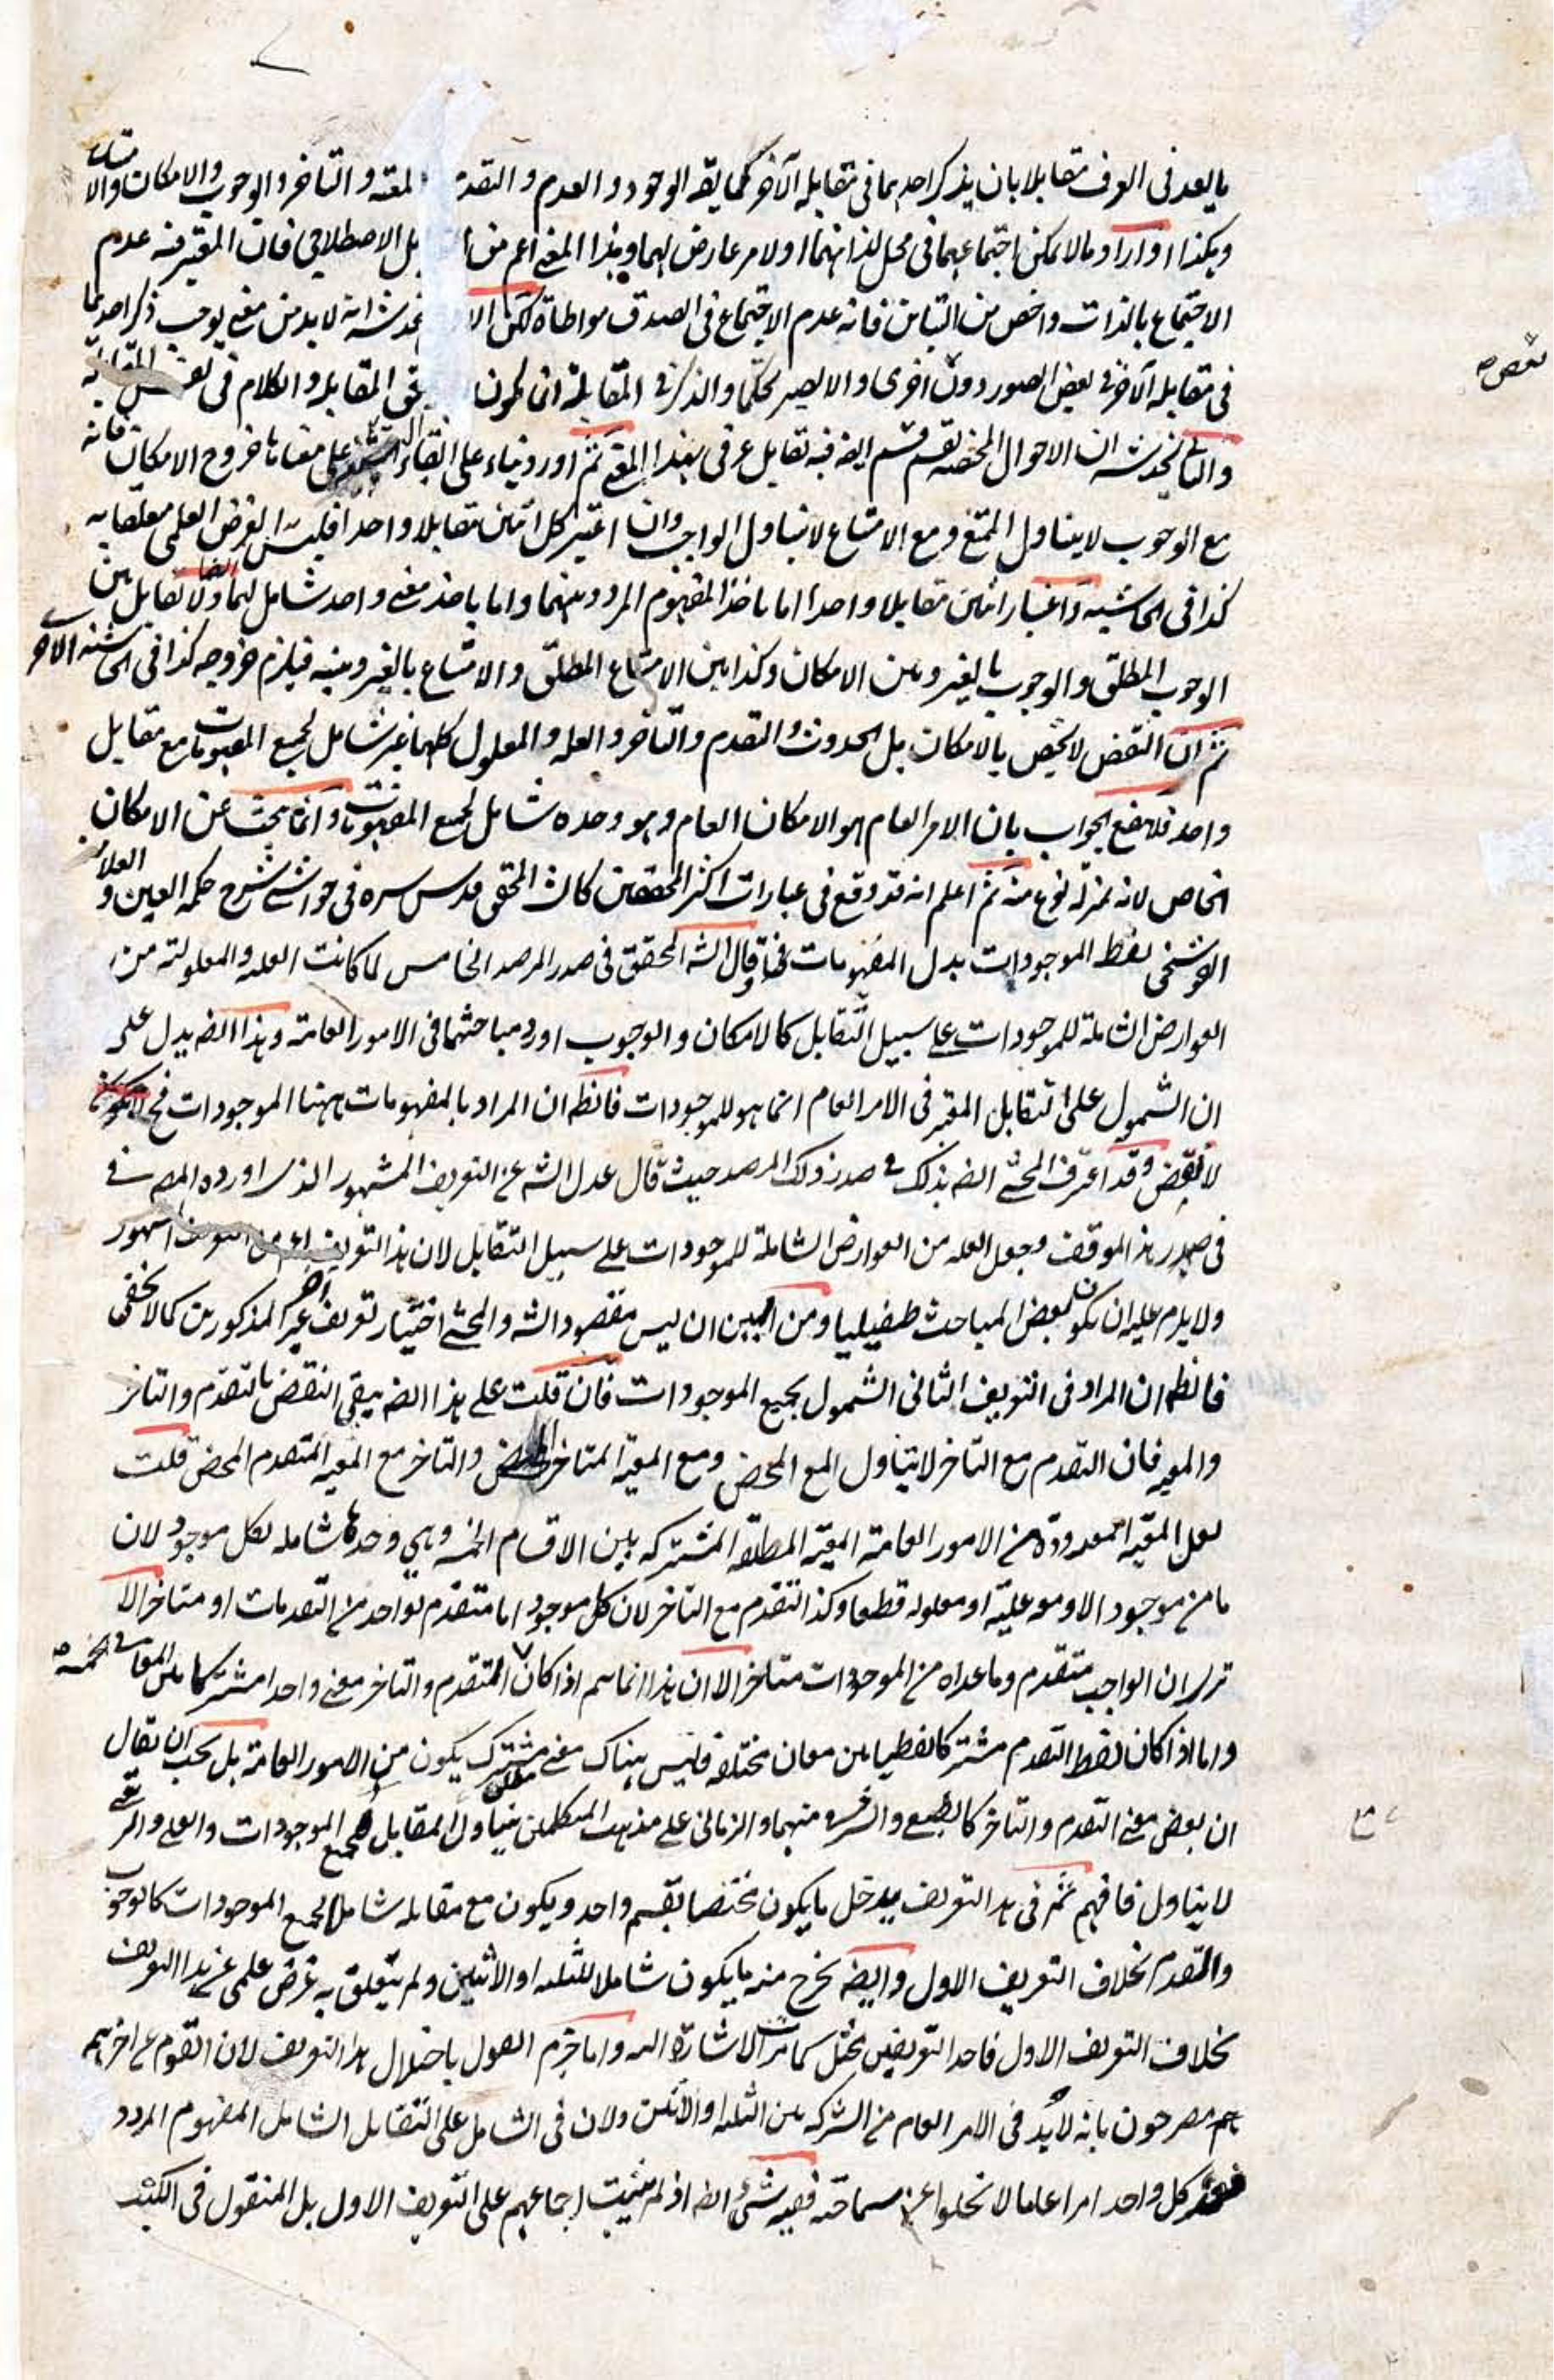 ما يعد فى العرف مقابلا بان يذكر احدهما فى مقابله الآخر كما يقه الوجود والعدم والتقد والتاخر والوجوب والامكان والا
وهكذا او اراد ما لا يمكن اجتماعهما فى محل لذاتهما او لامر عارض لهما وهذا المعنى اعم من ا بل الاصطلاحى فان المعتبر فيه عدم
الاجتماع بالذات واخص من التباين فانه عدم الاجتماع فى الصدق مواطاة لكن الا يخدشه انه لا بد من معنى يوجب ذكر احدهما
فى مقابله الآخر فى بعض الصور دون اخرى والا لصير تحكما والذكر فى المقابلة ان يكون المقابله والكلام فى
والثانى يخدشه ان الاحوال المختصه بقسم قسم ايضه فيه تقابل عرفى بهذا المعنى ثم اورد بناء على خروج الامكان فانه
مع الوجوب لا يتناول الممتنع ومع الامتناع لا يتناول الواجب وان اعتبر كل اثنين مقابلا واحدا فليس الغرض العلمى متعلقا به
كذا فى الحاشيه واعتبار اثنين مقابلا واحدا اما باخذ المفهوم المردد بينهما واما باخذ معنى واحد شامل لهما ولا تقابل بين
الوجوب المطلق والوجوب بالغير وبين الامكان وكذا بين الامتناع المطلق والامتناع بالغير وبينه فيلزم خروجه كذا فى الحاشيه الاخر
ثم ان النقض لا يختص بالامكان بل الحدوث والتقدم والتاخر والعله والمعلول كلها غير شامل لجميع المفهومات مع مقابل
واحد فلا ينفع الجواب بان الامر العام هو الامكان العام وهو وحده شامل لجميع المفهومات وانما يبحث عن الامكان
الخاص لانه بمنزلة نوع منه ثم اعلم انه قد وقع فى عبارات اكثر المحققين كالشه المحقق قدس سره فى حواشى شرح حكمه العين والعلامه
القوشنجى لفظ الموجودات بدل المفهومات وقال الشه المحقق فى صدر المرصد الخامس لما كانت العله والمعلولية من
العوارض الشاملة للموجودات على سبيل التقابل كالامكان والوجوب اورد مباحثهما فى الامور العامة وهذا ايضه يدل على
ان الشمول على التقابل المعتبر فى الامر العام انما هو للموجودات فالظه ان المراد بالمفهومات ههنا الموجودات فح
لا نقض وقد اعترف المحشى ايضه بذلك فى صدر ذلك المرصد حيث قال عدل الشه عن التعريف المشهور الذى اورده المصه فى
فى صدر هذا الموقف وجعل العله من العوارض الشاملة للموجودات على سبيل التقابل لان هذا التعريف
ولا يلزم عليه ان يكون بعض المباحث طفيليا ومن البين ان ليس مقصود الشه والمحشى اختيار تعريف آخر غير المذكورين كما لا يخفى
فالظه ان المراد فى التعريف الثانى الشمول لجميع الموجودات فان قلت على هذا ايضه يبقى النقض بالتقدم والتاخر
والمعيه فان التقدم مع التاخر لا يتناول المع المحض ومع المعيه المتاخر المحض والتاخر مع المعيه المتقدم المحض قلت
لعل المعيه المعدودة من الامور العامة المعيه المطلقه المشتركه بين الاقسام الخمسه وهى وحدها شامله لكل موجود لان
ما من موجود الا ومعه عليه او معلوله قطعا وكذا التقدم مع التاخر لان كل موجود اما متقدم بواحد من التقدمات او متاخر الا
ترى ان الواجب متقدم وما عداه من الموجودات متاخر الا ان هذا انما يتم اذا كان المتقدم والتاخر معنى واحدا مشتركا بين المعانى الخمسه
واما اذا كان لفظ التقدم مشتركا لفظيا بين معان مختلفه فليس هناك معنى مشترك يكون من الامور العامة بل يجب ان يقال
ان بعض معنى التقدم والتاخر كالطبع والشرف منهما والزمانى على مذهب المتكلمين يتناول المقابل لجميع الموجودات والعلى والرتبى
لا يتناول فافهم ثم فى هذا التعريف يدخل ما يكون مختصا بقسم واحد ويكون مع مقابله شاملا لجميع الموجودات كالوجوب
والتقدم بخلاف التعريف الاول وايضه يخرج منه ما يكون شاملا للثلثه او الاثنين ولم يتعلق به غرض علمى عن هذا التعريف
بخلاف التعريف الاول فاحد التعريفين مختل كما مرت الاشارة اليه واما جزم القول باختلال هذا التعريف لان القوم عن اخرهم
هم مصرحون بانه لا بد فى الامر العام من الشركه بين الثلثه او الاثنين ولان فى الشامل على التقابل الشامل المفهوم المردد
فعد كل واحد امرا عاما لا يخلوا عن سماحة ففيه شئ ايضه اذ لم يثبت اجماعهم على التعريف الاول بل المنقول فى الكتب